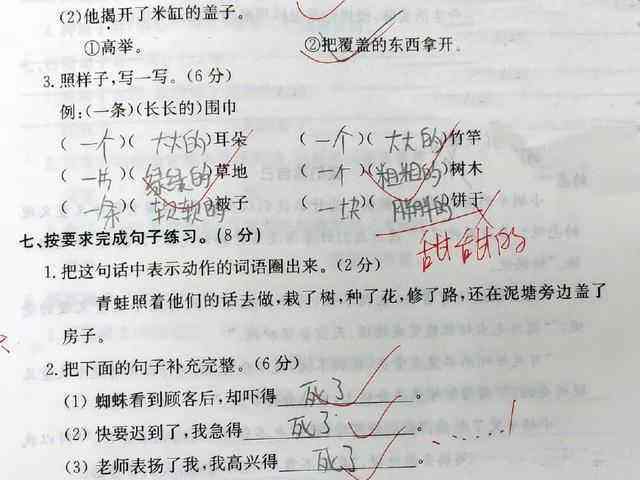 (2)他揭开了米缸的盖子。
①高举。 ②把覆盖的东西拿开。
3.照样子,写一写。(6分)
例:(一条)(长长的)围巾
(一个)(大大的)耳朵 (一个)(大大的)竹竿
(一片)(绿绿的)草地 (一个)(粗粗的)树木
(一条)(软软的)被子 (一块)(胖胖的)饼干
甜甜的
七、按要求完成句子练习。(8分)
1.把这句话中表示动作的词语圈出来。(2分)
青蛙照着他们的话去做,栽了树,种了花,修了路,还在泥塘旁边盖了
房子。
2.把下面的句子补充完整。(6分)
(1)蜘蛛看到顾客后,却吓得死了。
(2)快要迟到了,我急得死了。
......!
(3)老师表扬了我,我高兴得死了。